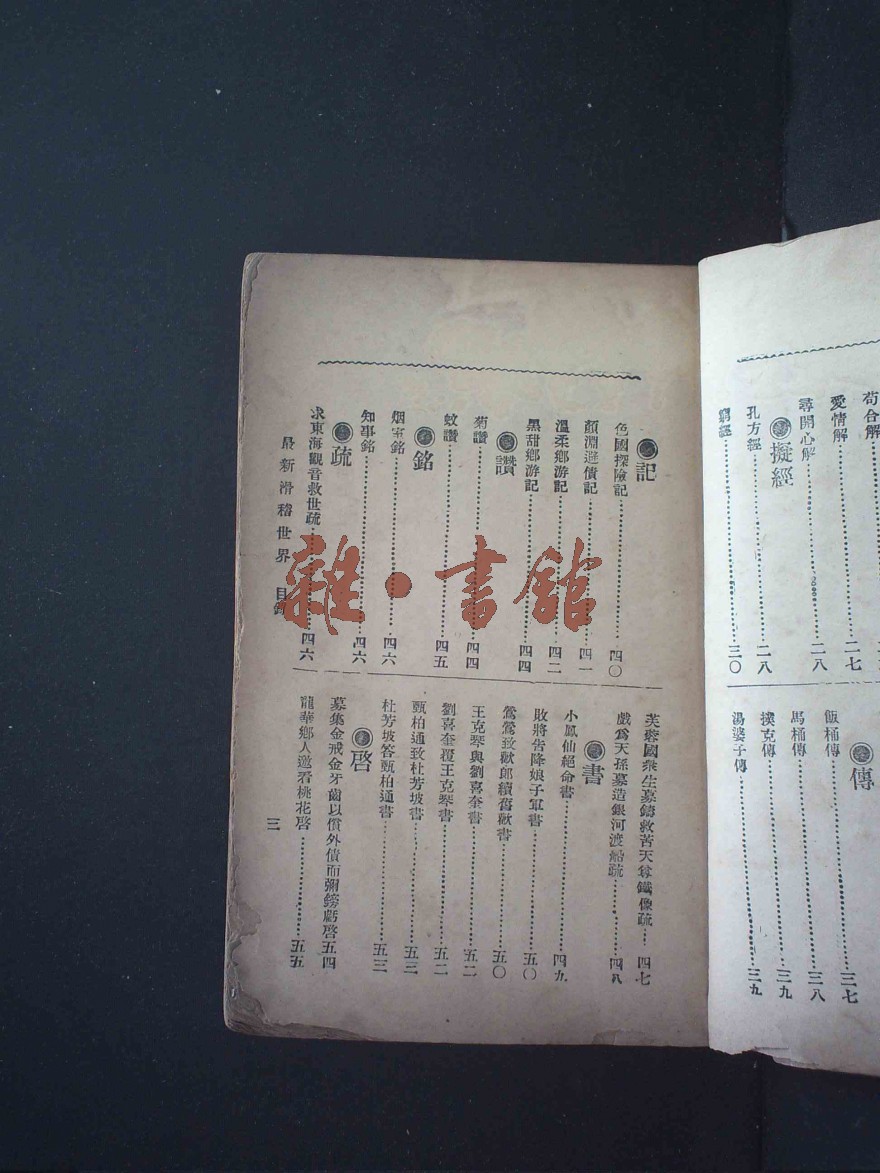 苟合解
愛情解……二七
尋開心解……二八
擬經
孔方經……二八
窮經……三〇
傳
飯桶傳……三七
馬桶傳……三八
撲克傳……三九
湯婆子傳……三九
記
色國探險記……四〇
顏淵避債記……四一
溫柔鄉游記……四二
黑甜鄉游記……四四
讚
菊讚……四四
蚊讚……四五
銘
烟室銘……四六
知事銘……四六
疏
求東海觀音救世疏……四六
芙蓉國衆生募鑄救苦天尊鐵像疏……四七
戲爲天孫募造銀河渡船疏……四八
書
小鳳仙絕命書……四九
敗將告降娘子軍書……五〇
鶯鶯致歡郎續舊歡書……五〇
王克琴與劉喜奎書……五二
劉喜奎覆王克琴書……五二
甄柏通致杜芳坡書……五三
杜芳坡答甄柏通書……五三
啓
募集金戒金牙齒以償外債而彌鎊虧啓五四
龍華鄉人邀看桃花啓……五五
最新滑稽世界 目錄
三
雜·書館